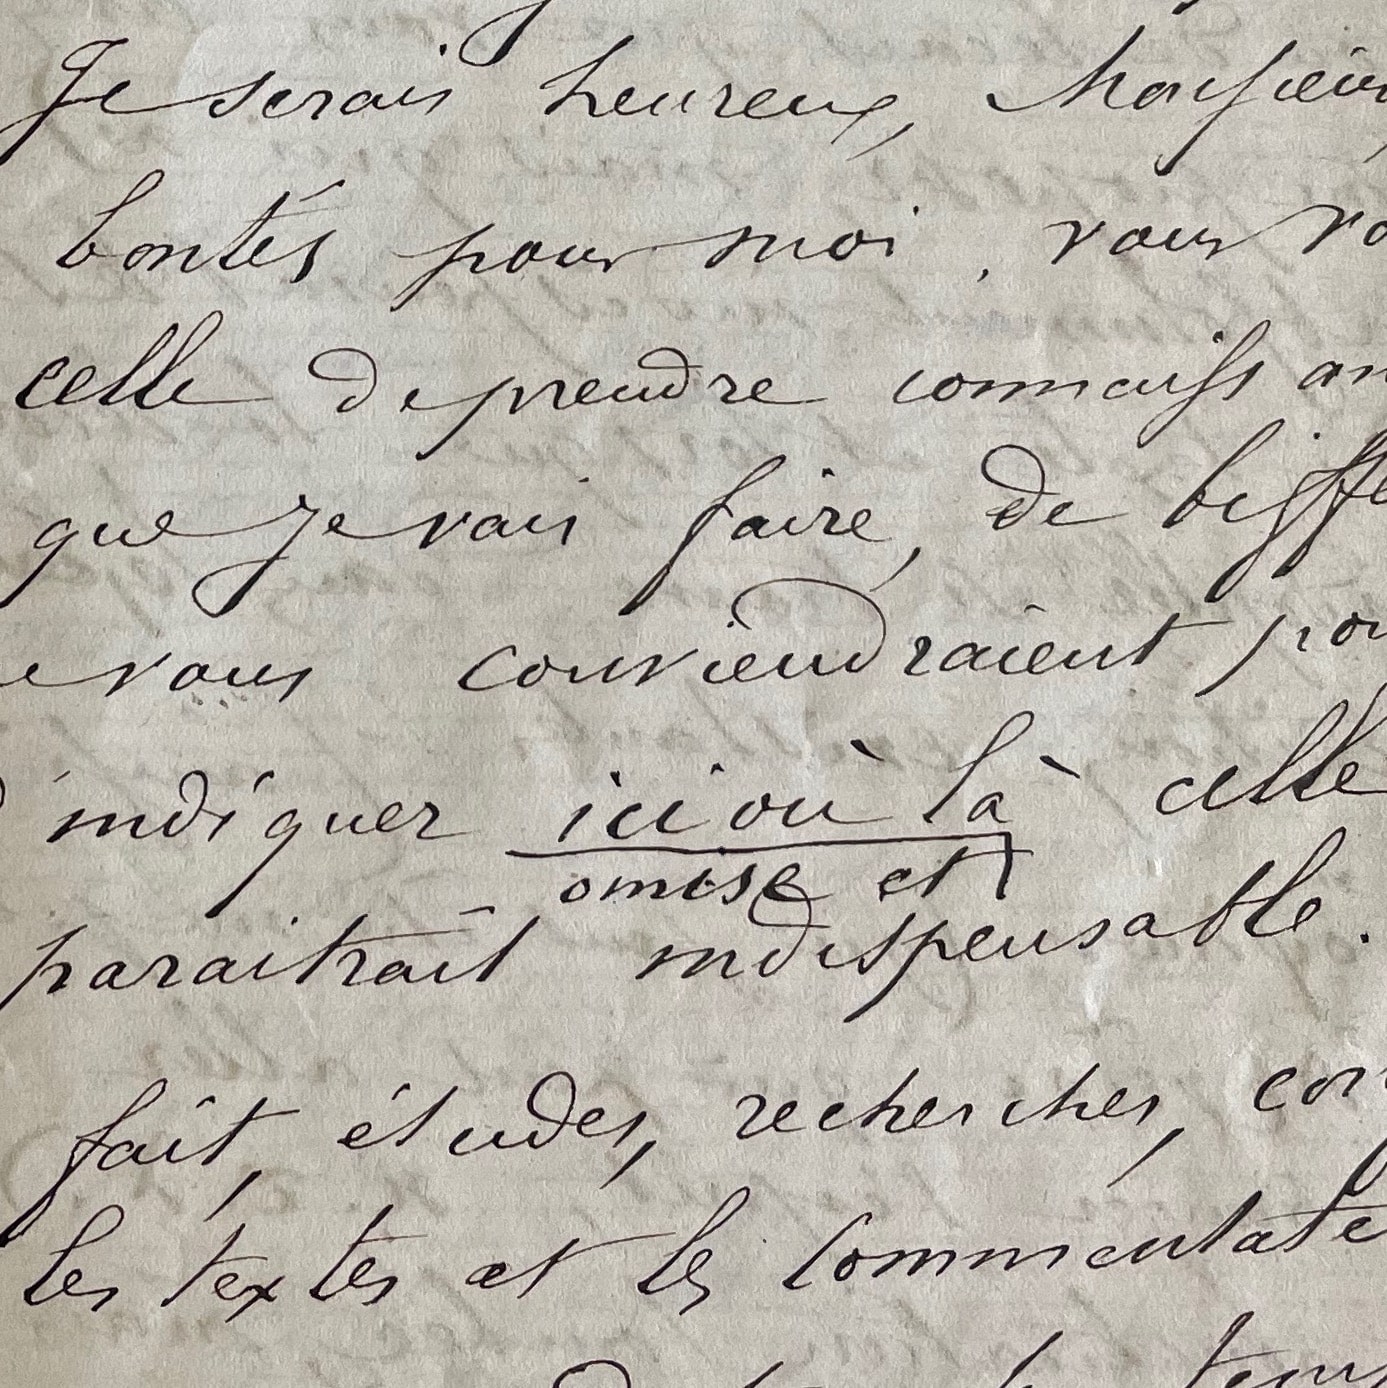 Je serais heureux, Monsieur,
bontés pour moi, vous vo
celle de prendre connaissan
que je vais faire, de biffe
vous conviendraient pou
d'indiquer ici où là celle
omise et
paraitrait indispensable.
fait, études, recherches, con
les textes et les commentate